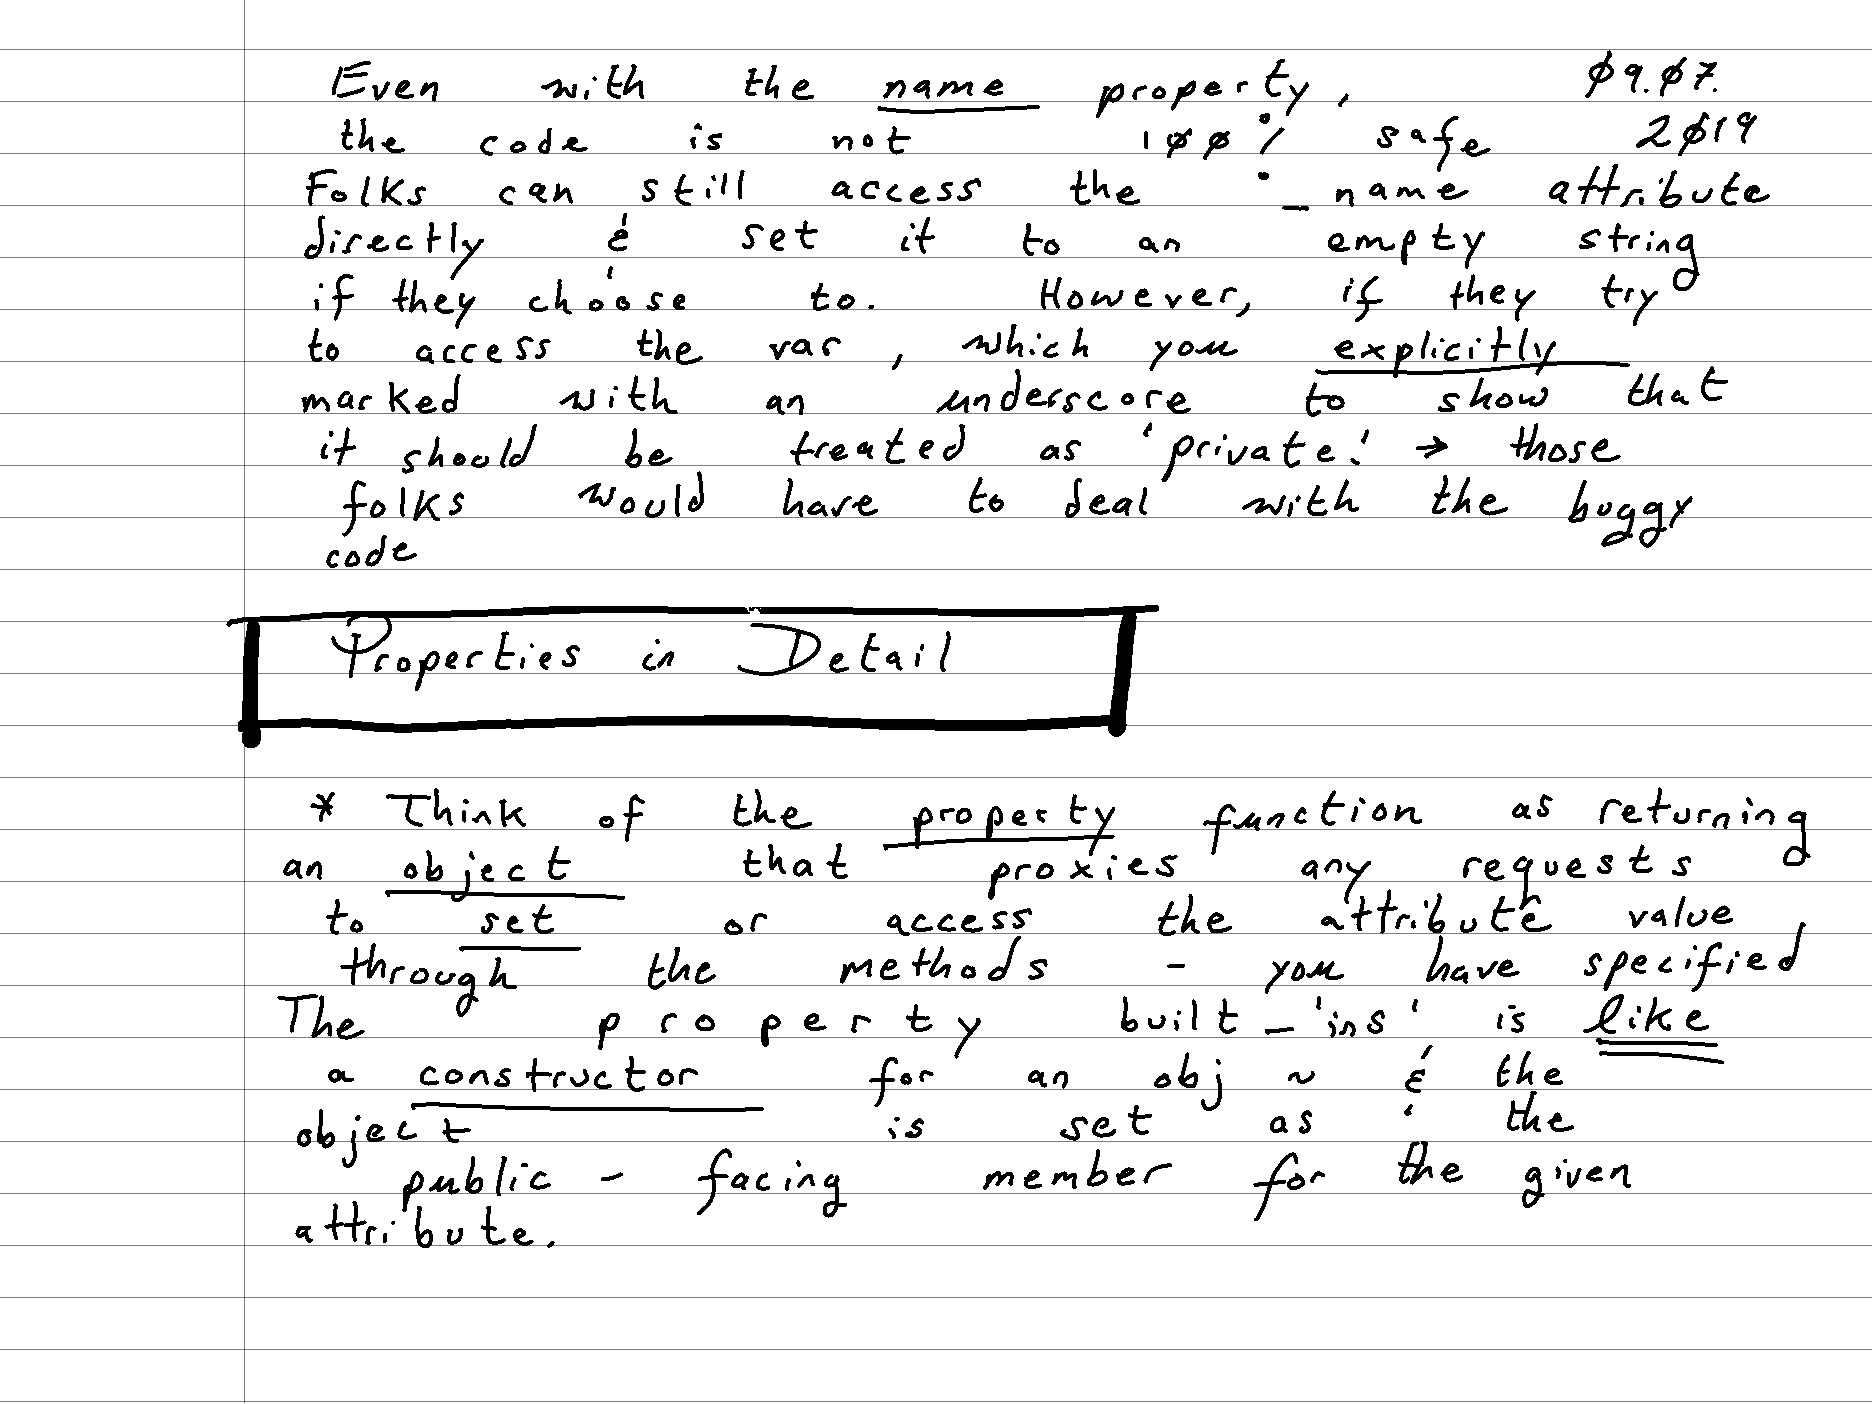 Even with the name property, 09.07.
the code is not 100% safe 2019
Folks can still access the _name attribute
directly & set it to an empty string
if they choose to. However, if they try
to access the var, which you explicitly
marked with an underscore to show that
it should be treated as 'private!' → those
folks would have to deal with the buggy
code
Properties in Detail
* Think of the property function as returning
an object that proxies any requests
to set or access the attribute value
through the methods - you have specified
The property built-'ins' is like
a constructor for an obj ~ & the
object is set as the
public - facing member for the given
attribute.